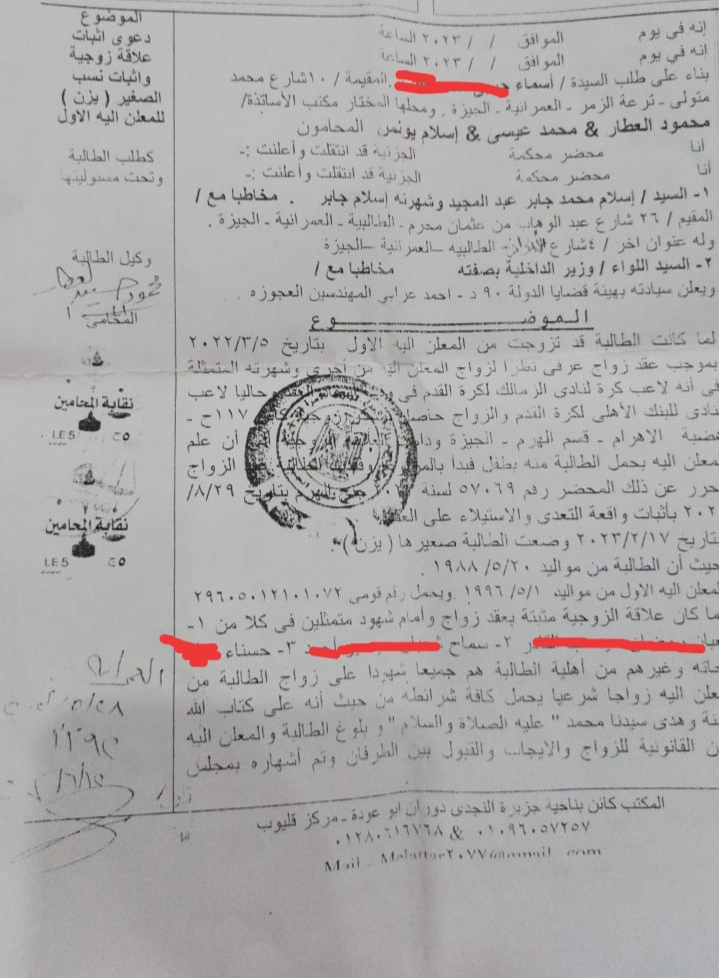 الموضوع
دعوى اثبات
علاقة زوجية
واثبات نسب
الصغير ( يزن )
للمعلن اليه الاول
كطلب الطالبة
وتحت مسئوليتها
وكيل الطالبة
المحامي
نقابة المحامين
LE5 ج٥
نقابة المحامين
LE5 ج٥
إنه في يوم الموافق / / ٢٠٢٣ الساعة
إنه في يوم الموافق / / ٢٠٢٣ الساعة
بناء على طلب السيدة / أسماء المقيمة / ١٠ شارع محمد
متولى - ترعة الزمر - العمرانية - الجيزة . ومحلها المختار مكتب الأساتذة/
محمود العطار & محمد عيسى & إسلام يونس المحامون
أنا محضر محكمة الجزئية قد انتقلت وأعلنت :-
أنا محضر محكمة الجزئية قد انتقلت وأعلنت :-
١- السيد / إسلام محمد جابر عبد المجيد وشهرته إسلام جابر . مخاطبا مع /
المقيم / ٢٦ شارع عبد الوهاب من عثمان محرم - الطالبية - العمرانية - الجيزة .
وله عنوان اخر / ٤ شارع الطالبيه - العمرانية - الجيزة
٢- السيد اللواء / وزير الداخلية بصفته مخاطبا مع /
ويعلن سيادته بهيئة قضايا الدولة ٩٠ د - احمد عرابي المهندسين العجوزه .
الموضوع
لما كانت الطالبة قد تزوجت من المعلن اليه الاول بتاريخ ٢٠٢٢/٣/٥
بموجب عقد زواج عرفي نظرا لزواج المعلن اليه من أخرى وشهرته المتمثلة
في أنه لاعب كرة لنادى الزمالك لكرة القدم في حاليا لاعب
نادى للبنك الأهلى لكرة القدم والزواج حاصل ١١٧ ح -
هضبة الاهرام - قسم الهرم - الجيزة أن علم
لمعلن اليه بحمل الطالبة منه بطفل فبدأ الزواج
حرر عن ذلك المحضر رقم ٥٧٠٦٩ لسنة بتاريخ ٨/٢٩/
٢٠٢ بأثبات واقعة التعدى والاستيلاء على
تاريخ ٢٠٢٣/٢/١٧ وضعت الطالبة صغيرها ( يزن ) .
حيث أن الطالبة من مواليد ١٩٨٨/٥/٢٠
لمعلن اليه الاول من مواليد ١٩٩٦/٥/١ ويحمل رقم قومى ٢٩٦٠٥٠١٢١٠١٠٧٢
ما كان علاقة الزوجية مثبتة بعقد زواج وأمام شهود متمثلين في كلا من ١-
٢- سماح ٣- حسناء
وغيرهم من أهلية الطالبة هم جميعا شهودا على زواج الطالبة من
معلن اليه زواجا شرعيا يحمل كافة شرائطه من حيث أنه على كتاب الله
نة وهدى سيدنا محمد " عليه الصلاة والسلام " و بلوغ الطالبة والمعلن اليه
ن القانونية للزواج والايجاب والقبول بين الطرفان وتم أشهاره بمجلس
المكتب كائن بناحية جزيرة النجدى دوران ابو عودة - مركز قليوب
٠١٠٩٦٠٥٧٢٥٧ & ٠١٢٨٠٦١٦٧٦٨